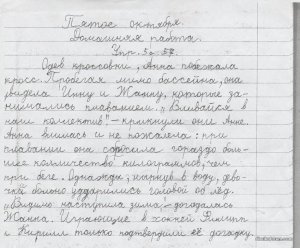 Пятое октября.
Домашняя работа.
Упр. 57.
Одев кроссовки, Анна побежала
кросс. Пробегая мимо бассейна, она
увидела Инну и Жанну, которые за-
нимались плаванием. „Вливайся в
наш коллектив" – крикнули они Анне.
Анна влилась и не пожалела: при
плавании она сбросила гораздо боль-
шее количество килограммов, чем
при беге. Однажды, нырнув в воду, дево-
чки больно ударились головой об лёд.
„Видимо наступила зима" – догадалась
Жанна. Играющие в хоккей Филипп
и Кирилл только подтвердили её догадку.